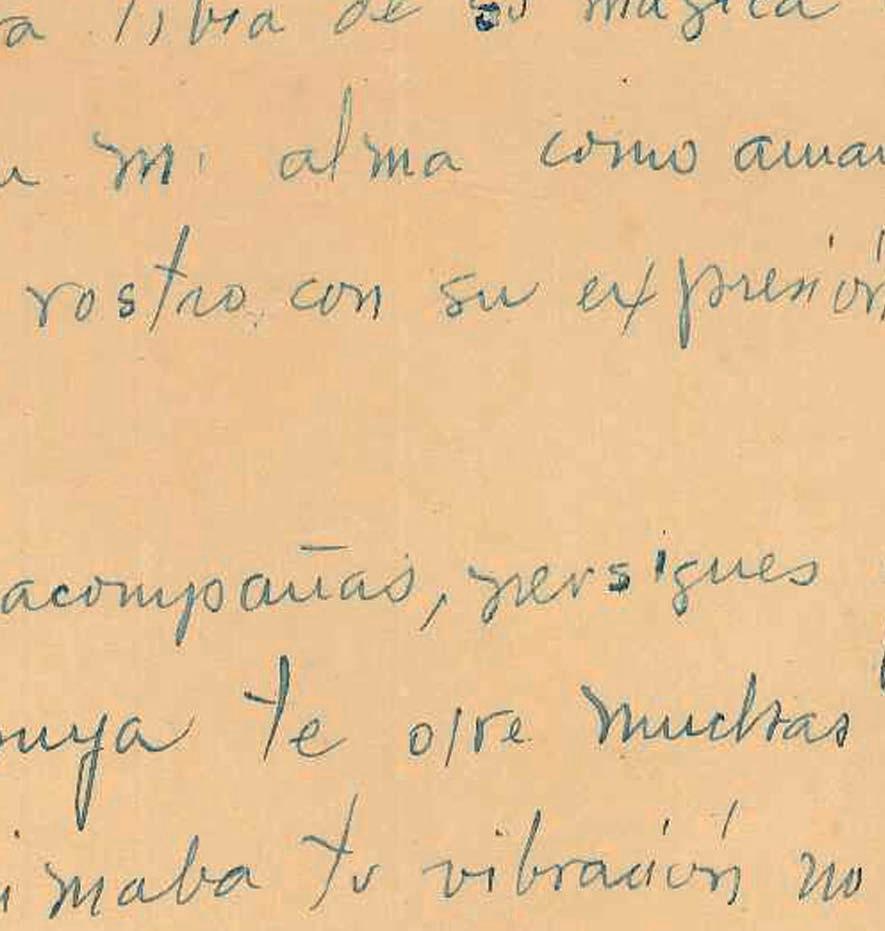 tibia de su mágica
mi alma como
rostro con su expresión
acompañas, persigues
te oiré muchas
maba tu vibración no